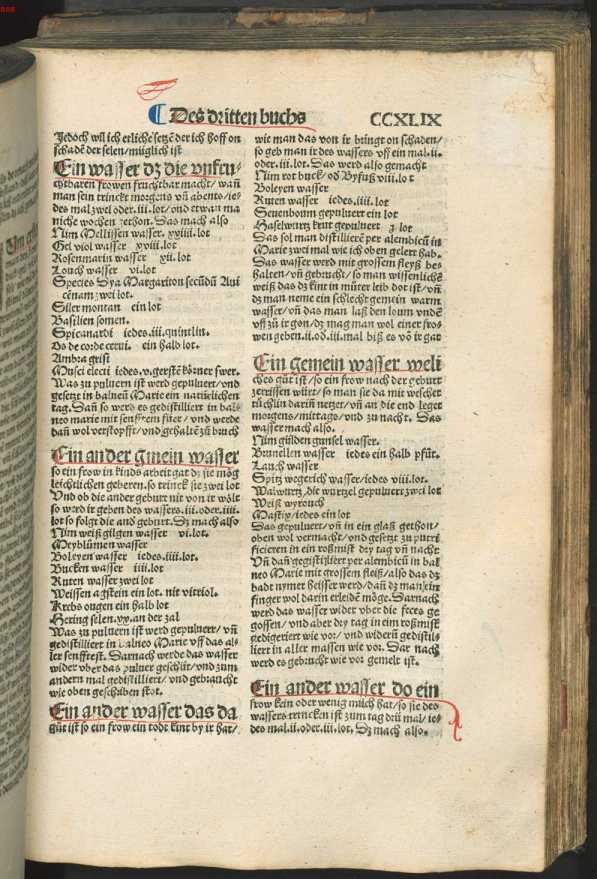 Des dritten buchs
CCXLIX
Jedoch wil ich etliche setzē der ich hoff on
schadē der selen/müglich ist
Ein wasser dz die vnfru-
chtbaren frowen fruchtbar macht/wañ
man sein trinckt morgens vñ abents/ie-
des mal zwei oder.iii.lot/vnd etwan ma
niche wochen gethon. Das mach also
Nim Mellissen wasser. xxiiii.lot
Gel viol wasser xviii.lot
Rosenmarin wasser xii.lot
Louch wasser vi.lot
Species Dya Margariton secūdū Aui
cēnam zwei lot.
Siler montan ein lot
Basilien somen.
Spicanardi iedes.iii.quintlin.
Os de corde cerui. ein halb lot.
Ambra grisi
Musci electi iedes.v.gerstē körner swer.
Was zu puluern ist werd gepuluert/vnd
gesetzt in balneū Marie ein natürlichen
tag. Dañ so werd es gedistilliert in bal
neo marie mit senfftem füer/vnd werde
dañ wol verstopfft/vnd gehaltē zū bruch
Ein ander gmein wasser
so ein frow in kinds arbeit gat dz sie mög
leichtlichen geberen. so trinck sie zwei lot
Vnd ob die ander geburt nit von ir wölt
so werd ir geben des wassers.iii.oder.iiii.
lot so folgt die and geburt. Dz mach also
Nim weiß gilgen wasser vi.lot.
Meyblümen wasser
Boleyen wasser iedes.iiii.lot.
Bucken wasser iiii.lot
Ruten wasser zwei lot
Weissen agstein ein lot. nit vitriol.
Krebs ougen ein halb lot
Hering selen.xx.an der zal
Was zu puluern ist werd gepuluert/vñ
gedistilliert in balneo Marie vff das al-
ler senfftest. Darnach werde das wasser
wider vber das puluer geschüt/vnd zum
andern mal gedistilliert/vnd gebraucht
wie oben geschriben stot.
Ein ander wasser das da
güt ist so ein frow ein todt kint by ir hat/
wie man das von ir bringt on schaden/
so geb man ir des wassers vff ein mal.ii.
oder.iii.lot. Das werd also gemacht
Nim rot buck/od Byfuß viii.lot
Boleyen wasser
Ruten wasser iedes.iiii.lot
Seuenboum gepuluert ein lot
Haselwurtz krut gepuluert
Das sol man distillierē per alembicū in
Marie zwei mal wie ich oben gelert hab.
Das wasser werd mit grossem fleyß be-
halten/vñ gebrucht/so man wissenlichē
weiß das dz kint in müter leib dot ist/vñ
dz man neme ein schlecht gemein warm
wasser/vñ das man laß den loum vndē
vff zü ir gon/dz mag man wol einer fro-
wen geben.ii.od.iii.mal biß es vō ir gat
Ein gemein wasser weli
ches güt ist/so ein frow nach der geburt
zerrissen würt/so man sie da mit weschet
tüchlin darin netzet/vñ an die end leget
morgens/mittags/vnd zu nacht. Das
wasser mach also.
Nim gülden gunsel wasser.
Brunellen wasser iedes ein halb pfūt.
Lauch wasser
Spitz wegerich wasser/iedes viii.lot.
Walwurtz die wurtzel gepuluert zwei lot
Weiß wyrouch
Mastix/iedes ein lot
Das gepuluert/vñ in ein glaß gethon/
oben wol vermacht/vnd gesetzt zu putri
ficieren in ein roßmist dry tag vñ nacht
Vñ dañ gegistilliert per alembicū in bal
neo Marie mit grossem fleiß/also das dz
badt nymer heisser werd/dañ dz man ein
finger wol darin erleidē möge. Darnach
werd das wasser wider vber die feces ge
gossen/vnd aber dry tag in eim roßmist
gedigeriert wie vor/vnd widerū gedistil-
liert in aller massen wie vor. Dar nach
werd es gebrucht wie vor gemelt ist.
Ein ander wasser do ein
frow kein oder wenig milch hat/so sie des
wassers trincken ist zum tag drü mal/ie-
des mal.ii.oder.iii.lot. Dz mach also.